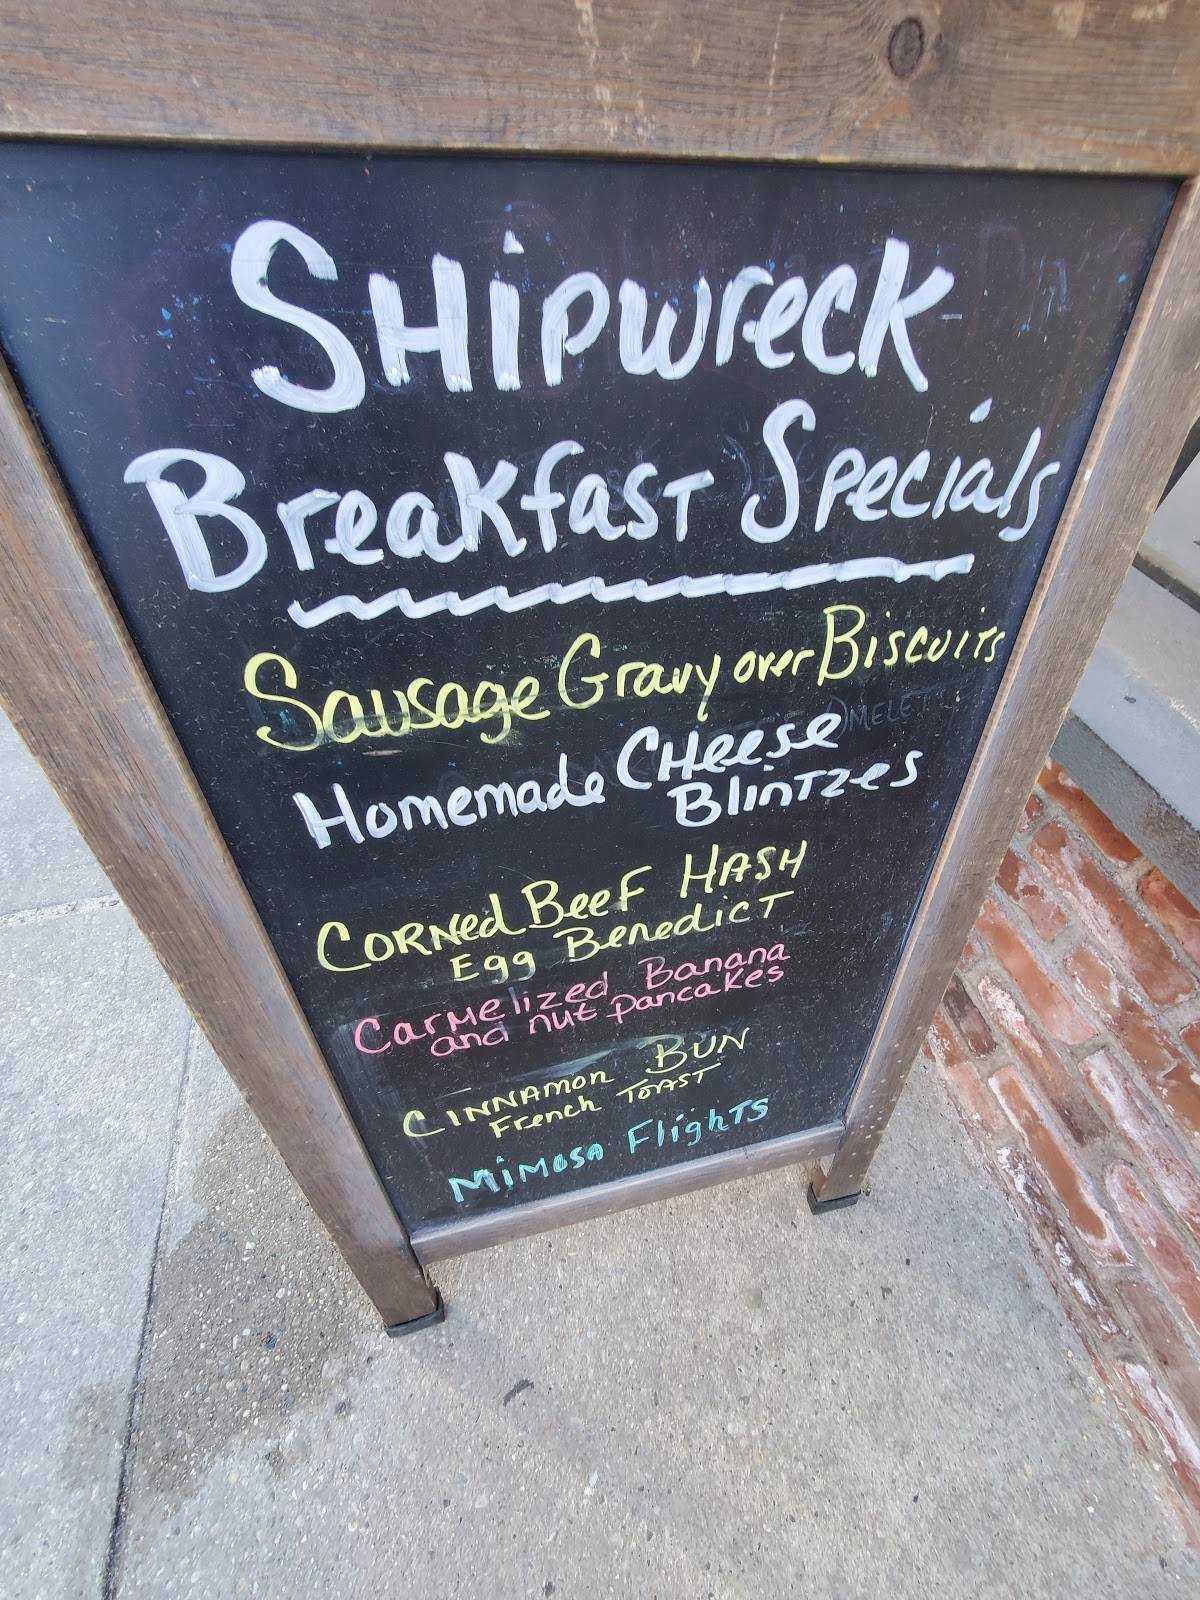 SHipwreck
Breakfast Specials
Sausage Gravy over Biscuits
Homemade CHeese
Blintzes
CORNed BeeF HASH
Egg Benedict
Carmelized Banana
and nut pancakes
CINNAMON BUN
French TOAST
MiMOSA FlighTS